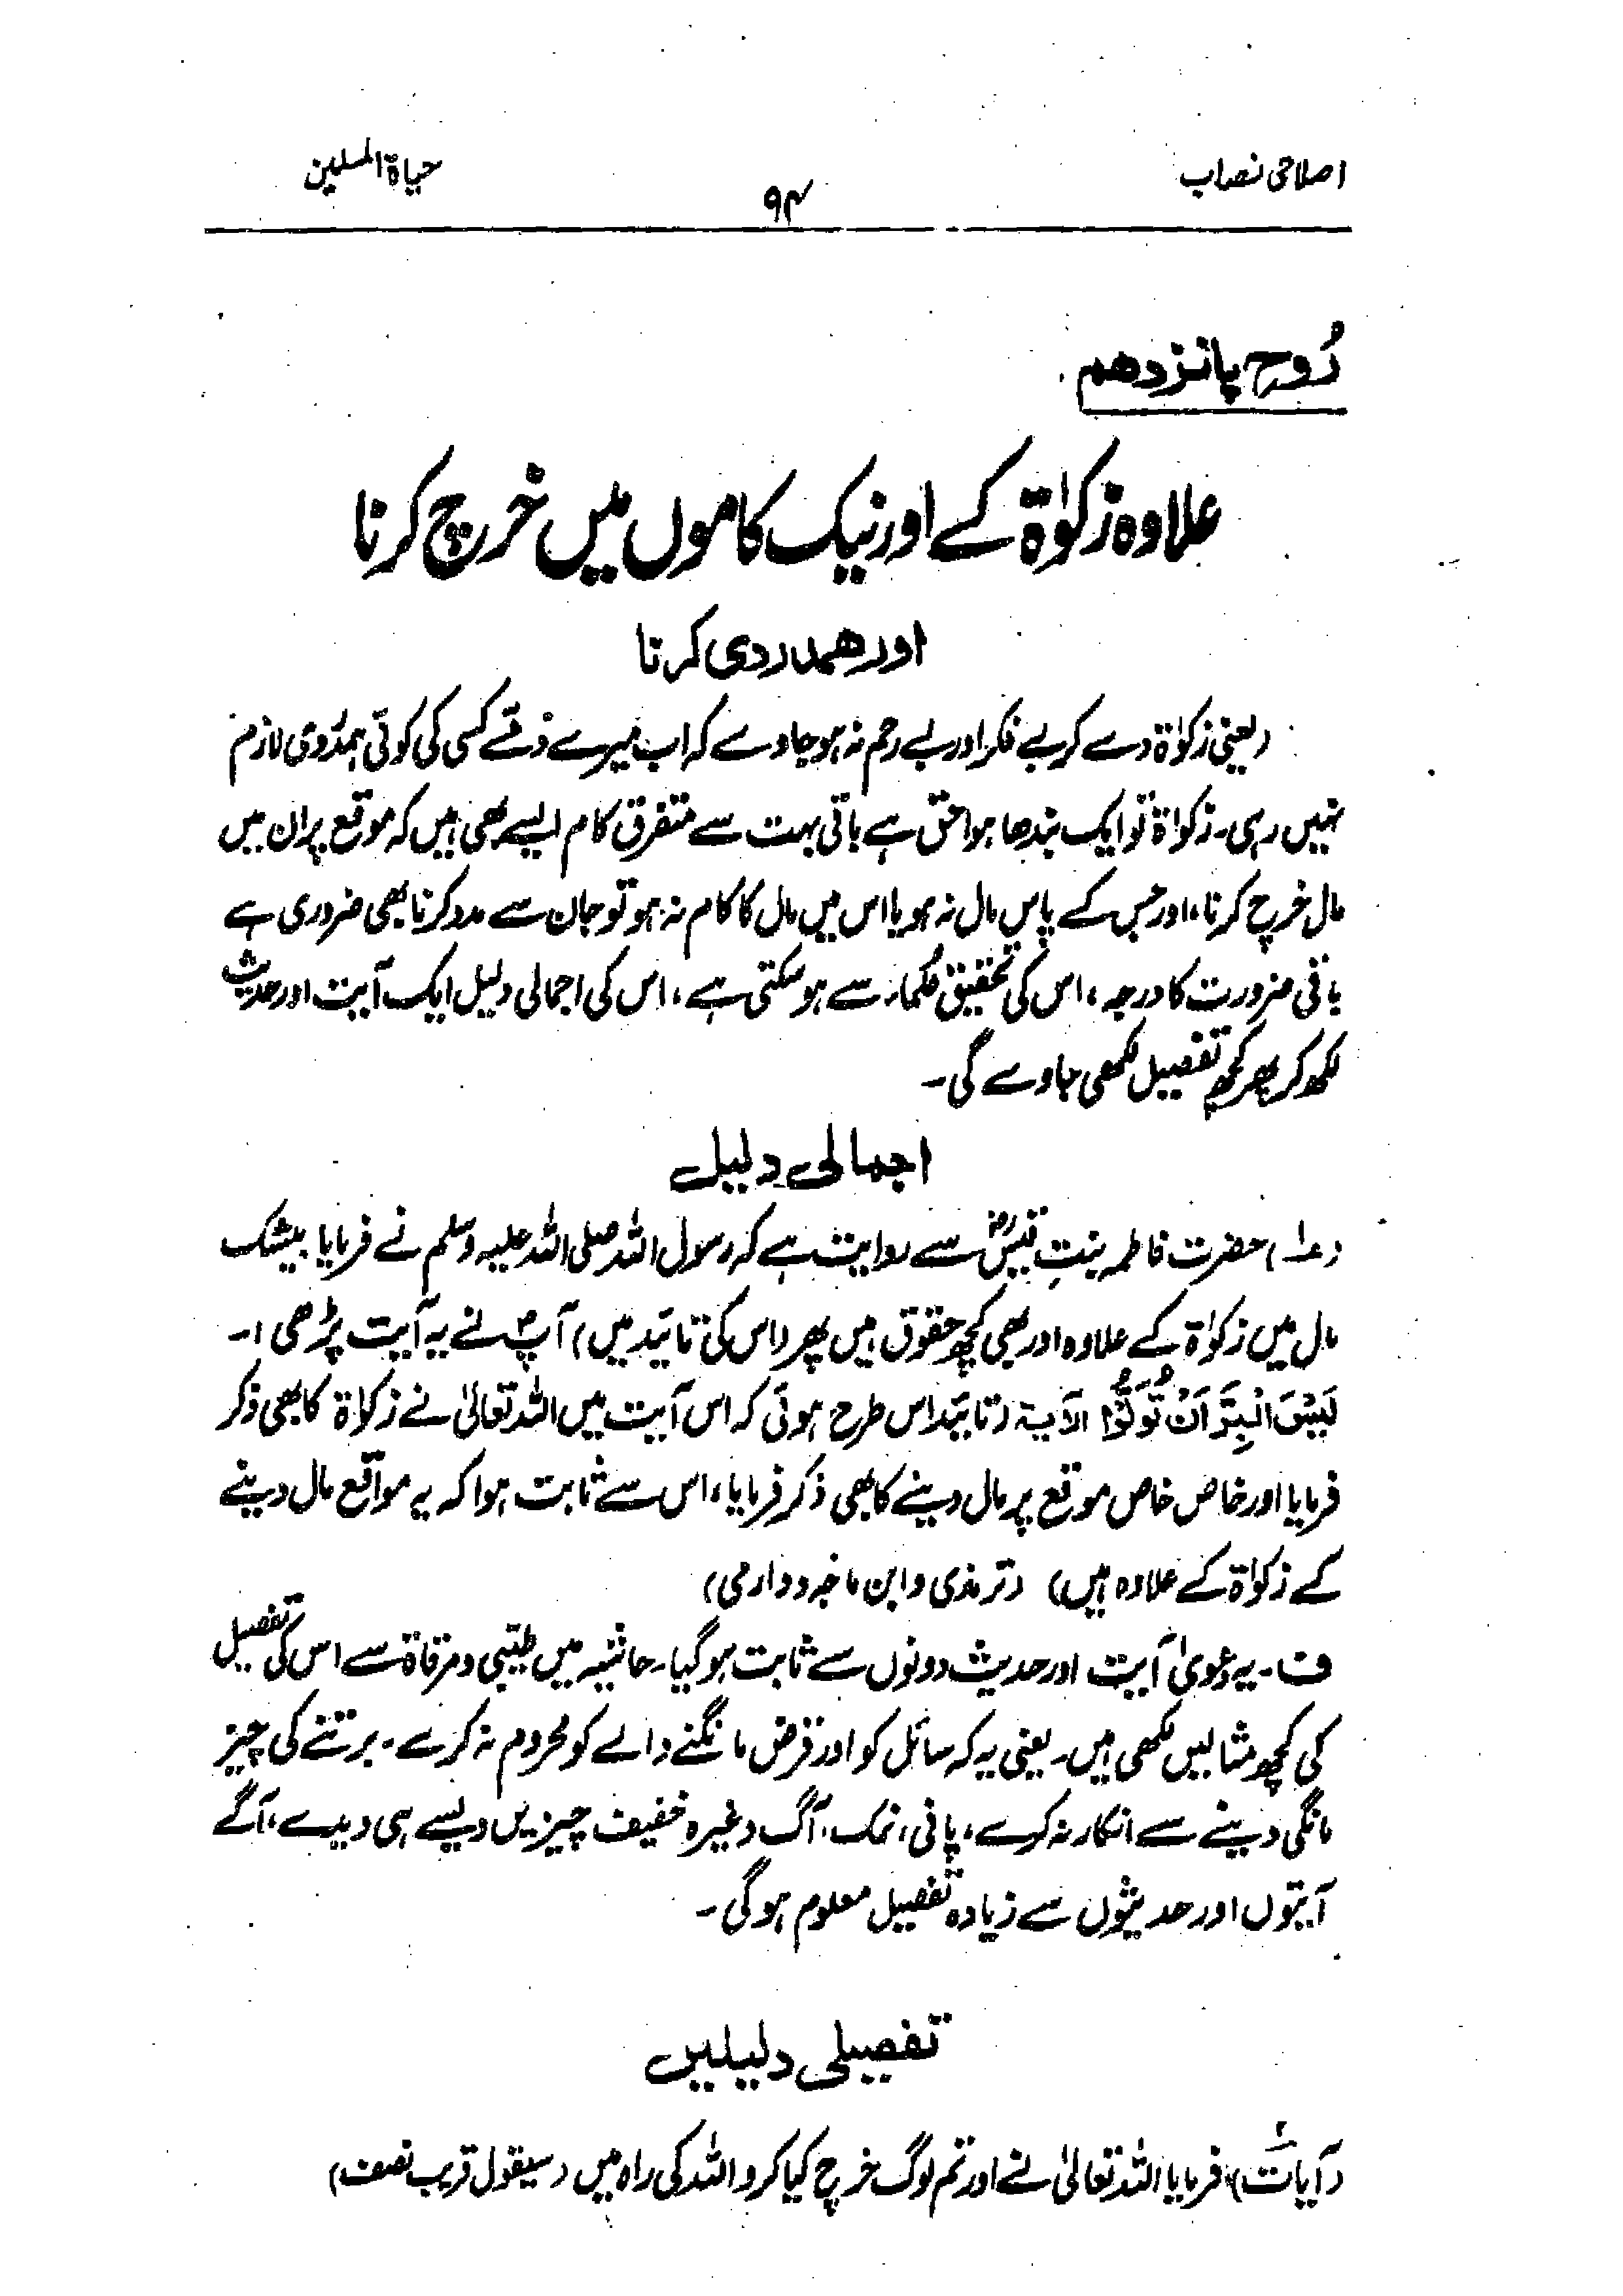 اصلاحی نصاب
۹۴
حیاۃ المسلمین
رُوح پانزدھم
علاوہ زکوٰۃ کے اور نیک کاموں میں خرچ کرنا
اور ھمدردی کرنا
(یعنی زکوٰۃ دے کر بے فکر اور بے رحم نہ ہو جاوے کہ اب میرے ذمّے کسی کی کوئی ہمدردی لازم
نہیں رہی۔ زکوٰۃ تو ایک بندھا ہوا حق ہے باقی بہت سے متفرق کام ایسے بھی ہیں کہ موقع پر ان میں
مال خرچ کرنا، اور جس کے پاس مال نہ ہو یا اس میں مال کا کام نہ ہو تو جان سے مدد کرنا بھی ضروری ہے
باقی ضرورت کا درجہ، اس کی تحقیق علماء سے ہو سکتی ہے، اس کی اجمالی دلیل ایک آیت اور حدیث
لکھ کر پھر کچھ تفصیل لکھی جاوے گی۔
اجمالی دلیل
(۱) حضرت فاطمہ بنتِ قیسؓ سے روایت ہے کہ رسول اللہ صلی اللہ علیہ وسلم نے فرمایا بیشک
مال میں زکوٰۃ کے علاوہ اور بھی کچھ حقوق ہیں پھر (اس کی تائید میں) آپؐ نے یہ آیت پڑھی :۔
لَیْسَ الْبِرَّ اَنْ تُوَلُّوْا الآیۃ (تائید اس طرح ہوئی کہ اس آیت میں اللہ تعالیٰ نے زکوٰۃ کا بھی ذکر
فرمایا اور خاص خاص موقع پر مال دینے کا بھی ذکر فرمایا، اس سے ثابت ہوا کہ یہ مواقع مال دینے
کے زکوٰۃ کے علاوہ ہیں) (ترمذی و ابن ماجہ و دارمی)
ف۔ یہ دعویٰ آیت اور حدیث دونوں سے ثابت ہو گیا۔ حاشیہ میں طیبی و مرقاۃ سے اس کی تفصیل
کی کچھ مثالیں لکھی ہیں۔ یعنی یہ کہ سائل کو اور قرض مانگنے والے کو محروم نہ کرے۔ برتنے کی چیز
مانگی دینے سے انکار نہ کرے، پانی، نمک، آگ وغیرہ خفیف چیزیں ویسے ہی دیدے، آگے
آیتوں اور حدیثوں سے زیادہ تفصیل معلوم ہو گی۔
تفصیلی دلیلیں
(آیات) ۱ فرمایا اللہ تعالیٰ نے اور تم لوگ خرچ کیا کرو اللہ کی راہ میں (سیقول قریب نصف)